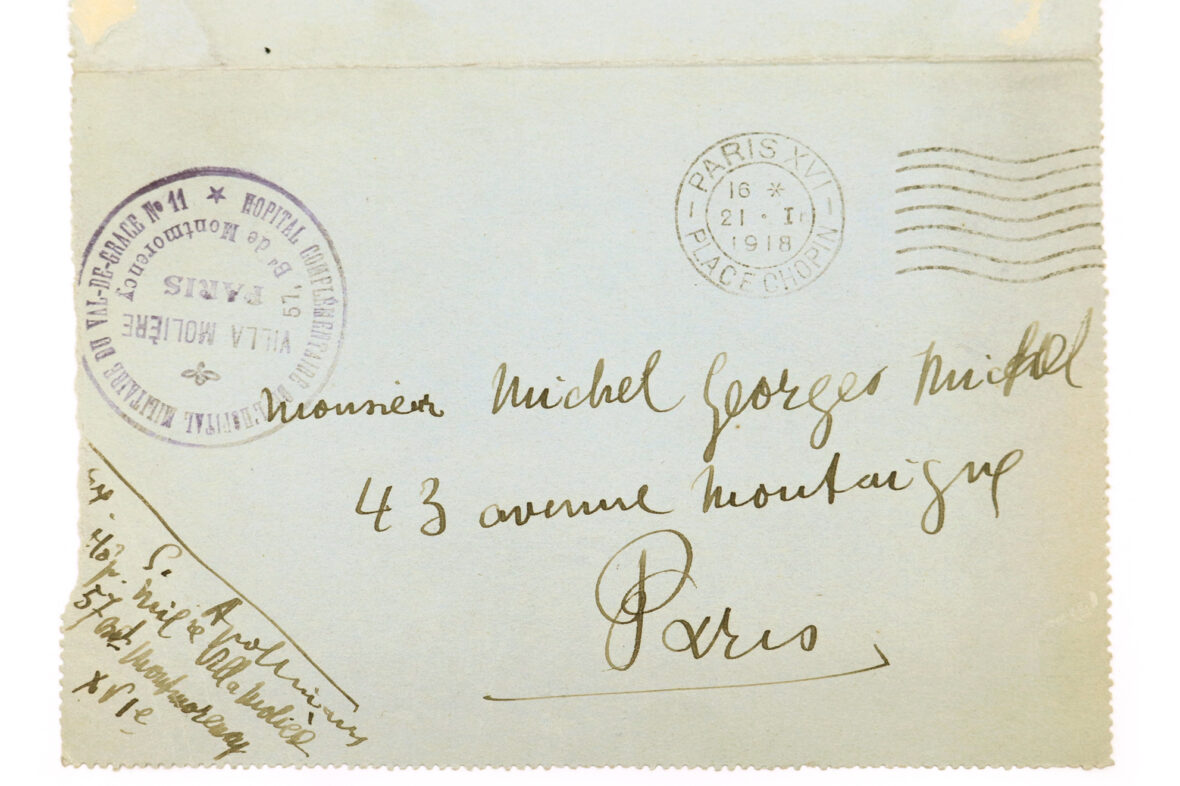 PARIS XVI
16 *
21 · I
1918
PLACE CHOPIN
HOPITAL COMPLÉMENTAIRE DE L'HOPITAL MILITAIRE DU VAL-DE-GRACE No 11
VILLA MOLIÈRE
57,
Bd de Montmorency
PARIS
Monsieur Michel Georges Michel
43 avenue Montaigne
Paris
G. Apollinaire
Hôp. Milre Villa Molière
57 Bd Montmorency
XVIe